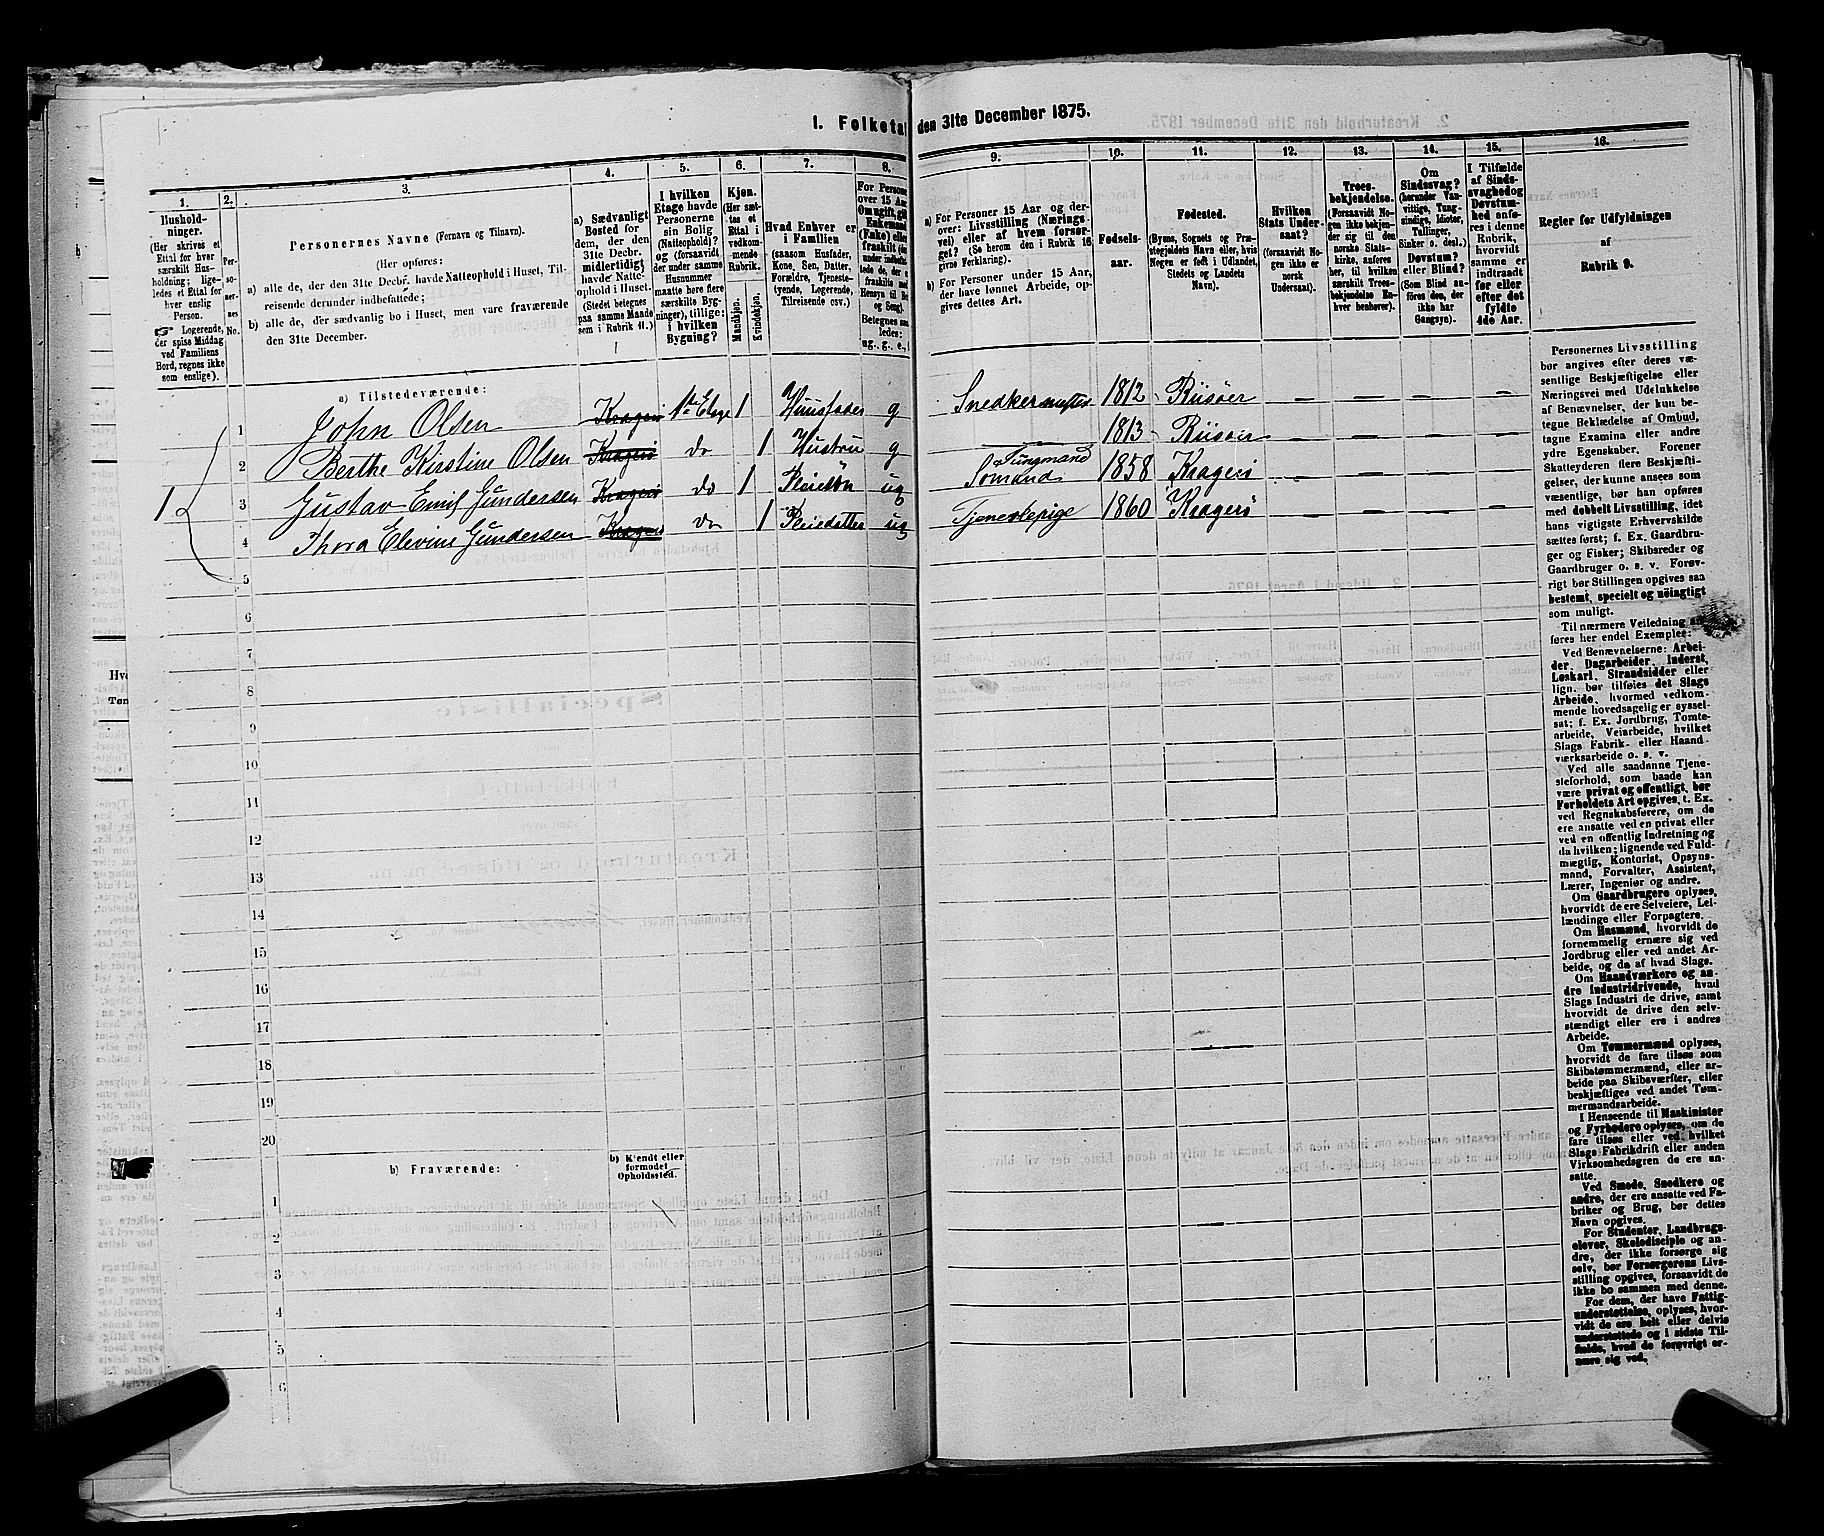 I. Folketal den 31te December 1875.
1.
2.
3.
4.
5.
6.
7.
8.
9.
10.
11.
12.
13.
14.
15.
16.
Hushold-
ninger.
(Her skrives et
Ettal for hver
særskilt Hus-
holdning; lige-
ledes et Ettal for
hver enslig
Person.
☞ Logerende,
der spise Middag
ved Familiens
Bord, regnes ikke
som enslige).
Per-
so-
ner-
nes
No.
Personernes Navne (Fornavn og Tilnavn).
(Her opføres:
a) alle de, der den 31te Decbr. havde Natteophold i Huset, Til-
reisende derunder indbefattede;
b) alle de, der sædvanlig bo i Huset, men vare fraværende
den 31te December.
a) Sædvanligt
Bosted for
dem, der den
31te Decbr.
midlertidigt
havde Natte-
ophold i Huset.
(Stedet betegnes
paa samme Maade
som i Rubrik 11.)
I hvilken
Etage havde
Personerne
sin Bolig
(Natteophold)?
og (forsaavidt
der under samme
Husnummer
maatte høre flere
særskilte Byg-
ninger), tillige:
i hvilken
Bygning?
Kjøn.
(Her sæt-
tes et
Ettal i
vedkom-
mende
Rubrik.
Mandkjøn.
Kvindekjøn.
Hvad Enhver er
i Familien
(saasom Husfader,
Kone, Søn, Datter,
Forældre, Tjeneste-
tyende, Logerende,
Tilreisende osv.)
ug., g., e.,
a) For Personer 15 Aar og der-
over: Livsstilling (Nærings-
vei) eller af hvem forsør-
get? (Se herom den i Rubrik 16
givne Forklaring).
b) For Personer under 15 Aar,
der have lønnet Arbeide, op-
gives dettes Art.
Fødsels-
aar.
Fødested.
(Byens, Sognets og Præ-
stegjeldets Navn eller, hvis
Nogen er født i Udlandet,
Stedets og Landets
Navn).
Hvilken
Stats Under-
saat?
(forsaavidt No-
gen ikke er
norsk
Undersaat).
Troes-
bekjendelse.
(Forsaavidt No-
gen ikke bekjen-
der sig til den
norske Stats-
kirke, anføres
her, til hvilken
særskilt Troes-
bekjendelse En-
hver henhører).
Om
Sindssvag?
(herunder Van-
vittige, Tung-
sindige, Idioter,
Tullinger,
Sinker o. desl.)
Døvstum?
eller Blind?
(Som Blind an-
føres den, der
ikke har
Gangsyn).
I Tilfælde
af Sinds-
svaghed og
Døvstum-
hed anfø-
res i denne
Rubrik,
hvorvidt
samme er
indtraadt
før eller
efter det
fyldte
4de Aar.
Regler for Udfyldningen
af
Rubrik 9.
a) Tilstedeværende:
1 John Olsen Kragerö 1ste Etage 1 Huusfader g Snedkermester 1812 Riisøer
2 Berthe Kirstine Olsen Kragerö do 1 Hustru g 1813 Riisøer
1 3 Gustav Emil Gundersen Kragerö do 1 Pleiesön ug Jungmand Sømand 1858 Kragerö
4 Thora Elevine Gundersen Kragerö do 1 Pleiedatter ug Tjenestepige 1860 Kragerö
5
6
7
8
9
10
11
12
13
14
15
16
17
18
19
20
b) Fraværende:
b) Kjendt eller
formodet
Opholdssted.
1
2
3
4
5
6
Personernes Livsstilling
bør angives efter deres væ-
sentlige Beskjæftigelse eller
Næringsvei med Udelukkelse
af Benævnelser, der kun be-
tegne Beklædelse af Ombud,
tagne Examina eller andre
ydre Egenskaber. Forener
Skatteyderen flere Beskjæfti-
gelser, der kunne ansees som
væsentlige, bør han opføres
med dobbelt Livsstilling, idet
hans vigtigste Erhvervskilde
sættes først; f. Ex. Gaardbru-
ger og Fisker; Skibsreder og
Gaardbruger o. s. v. Forøv-
rigt bør Stillingen opgives saa
bestemt, specielt og nöiagtigt
som muligt.
Til nærmere Veiledning an-
føres her endel Exempler:
Ved Benævnelserne: Arbei-
der, Dagarbeider, Inderst,
Løskarl, Strandsidder eller
lign. bør tilføies det Slags
Arbeide, hvormed vedkom-
mende hovedsagelig er syssel-
sat; f. Ex. Jordbrug, Tomte-
arbeide, Veiarbeide, hvilket
Slags Fabrik- eller Haand-
værksarbeide o. s. v.
Ved alle saadanne Tjene-
steforhold, som baade kan
være privat og offentligt, bør
Forholdets Art opgives, t. Ex.
ved Regnskabsførere, om de
ere ansatte ved en privat eller
ved en offentlig Indretning og
da hvilken; lignende ved Fuld-
mægtig, Kontorist, Opsyns-
mand, Forvalter, Assistent,
Lærer, Ingeniør og andre.
Om Gaardbrugere oplyses,
hvorvidt de ere Selveiere, Lei-
lændinge eller Forpagtere.
Om Husmænd, hvorvidt de
fornemmelig ernære sig ved
Jordbrug eller ved andet Ar-
beide, og da af hvad Slags.
Om Haandværkere og an-
dre Industridrivende, hvad
Slags Industri de drive, samt
hvorvidt de drive den selv-
stændigt eller ere i andres
Arbeide.
Om Tømmermænd oplyses,
hvorvidt de fare tilsøs som
Skibstømmermænd, eller ar-
beide paa Skibsværfter, eller
beskjæftiges ved andet Tøm-
mermandsarbeide.
I Henseende til Maskinister
og Fyrbødere oplyses, om de
fare tilsøs eller ved hvilket
Slags Fabrikdrift eller anden
Virksomhedsgren de ere an-
satte.
Ved Smede, Snedkere og
andre, der ere ansatte ved Fa-
briker og Brug, bør dettes
Navn opgives.
For Studenter, Landbrugs-
elever, Skoledisciple og an-
dre, der ikke forsørge sig
selv, bør Forsørgerens Livs-
stilling opgives, forsaavidt de
ikke bo sammen med denne.
For dem, der have Fattig-
understøttelse, oplyses, hvor-
vidt de ere helt eller delvis
understøttede og i sidste Til-
fælde, hvad de forøvrigt er-
nære sig ved.